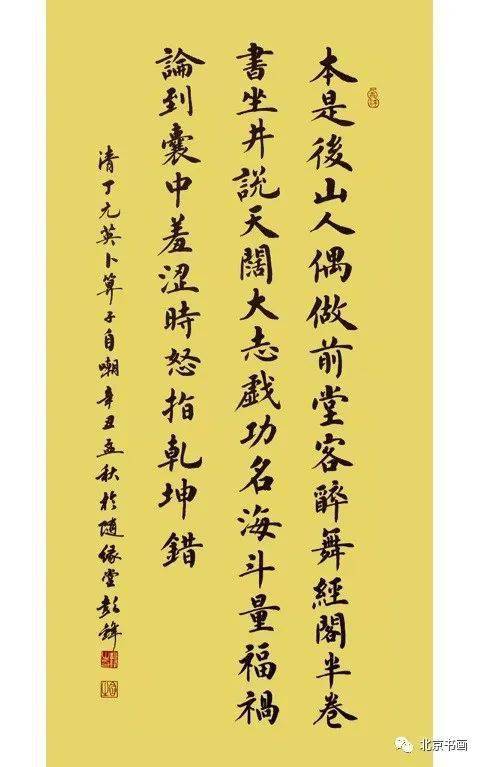 本是後山人偶做前堂客醉舞經閣半卷
書坐井說天闊大志戲功名海斗量福禍
論到囊中羞澀時怒指乾坤錯
清丁元英卜算子自嘲辛丑孟秋於隨緣堂彭鋒
北京书画